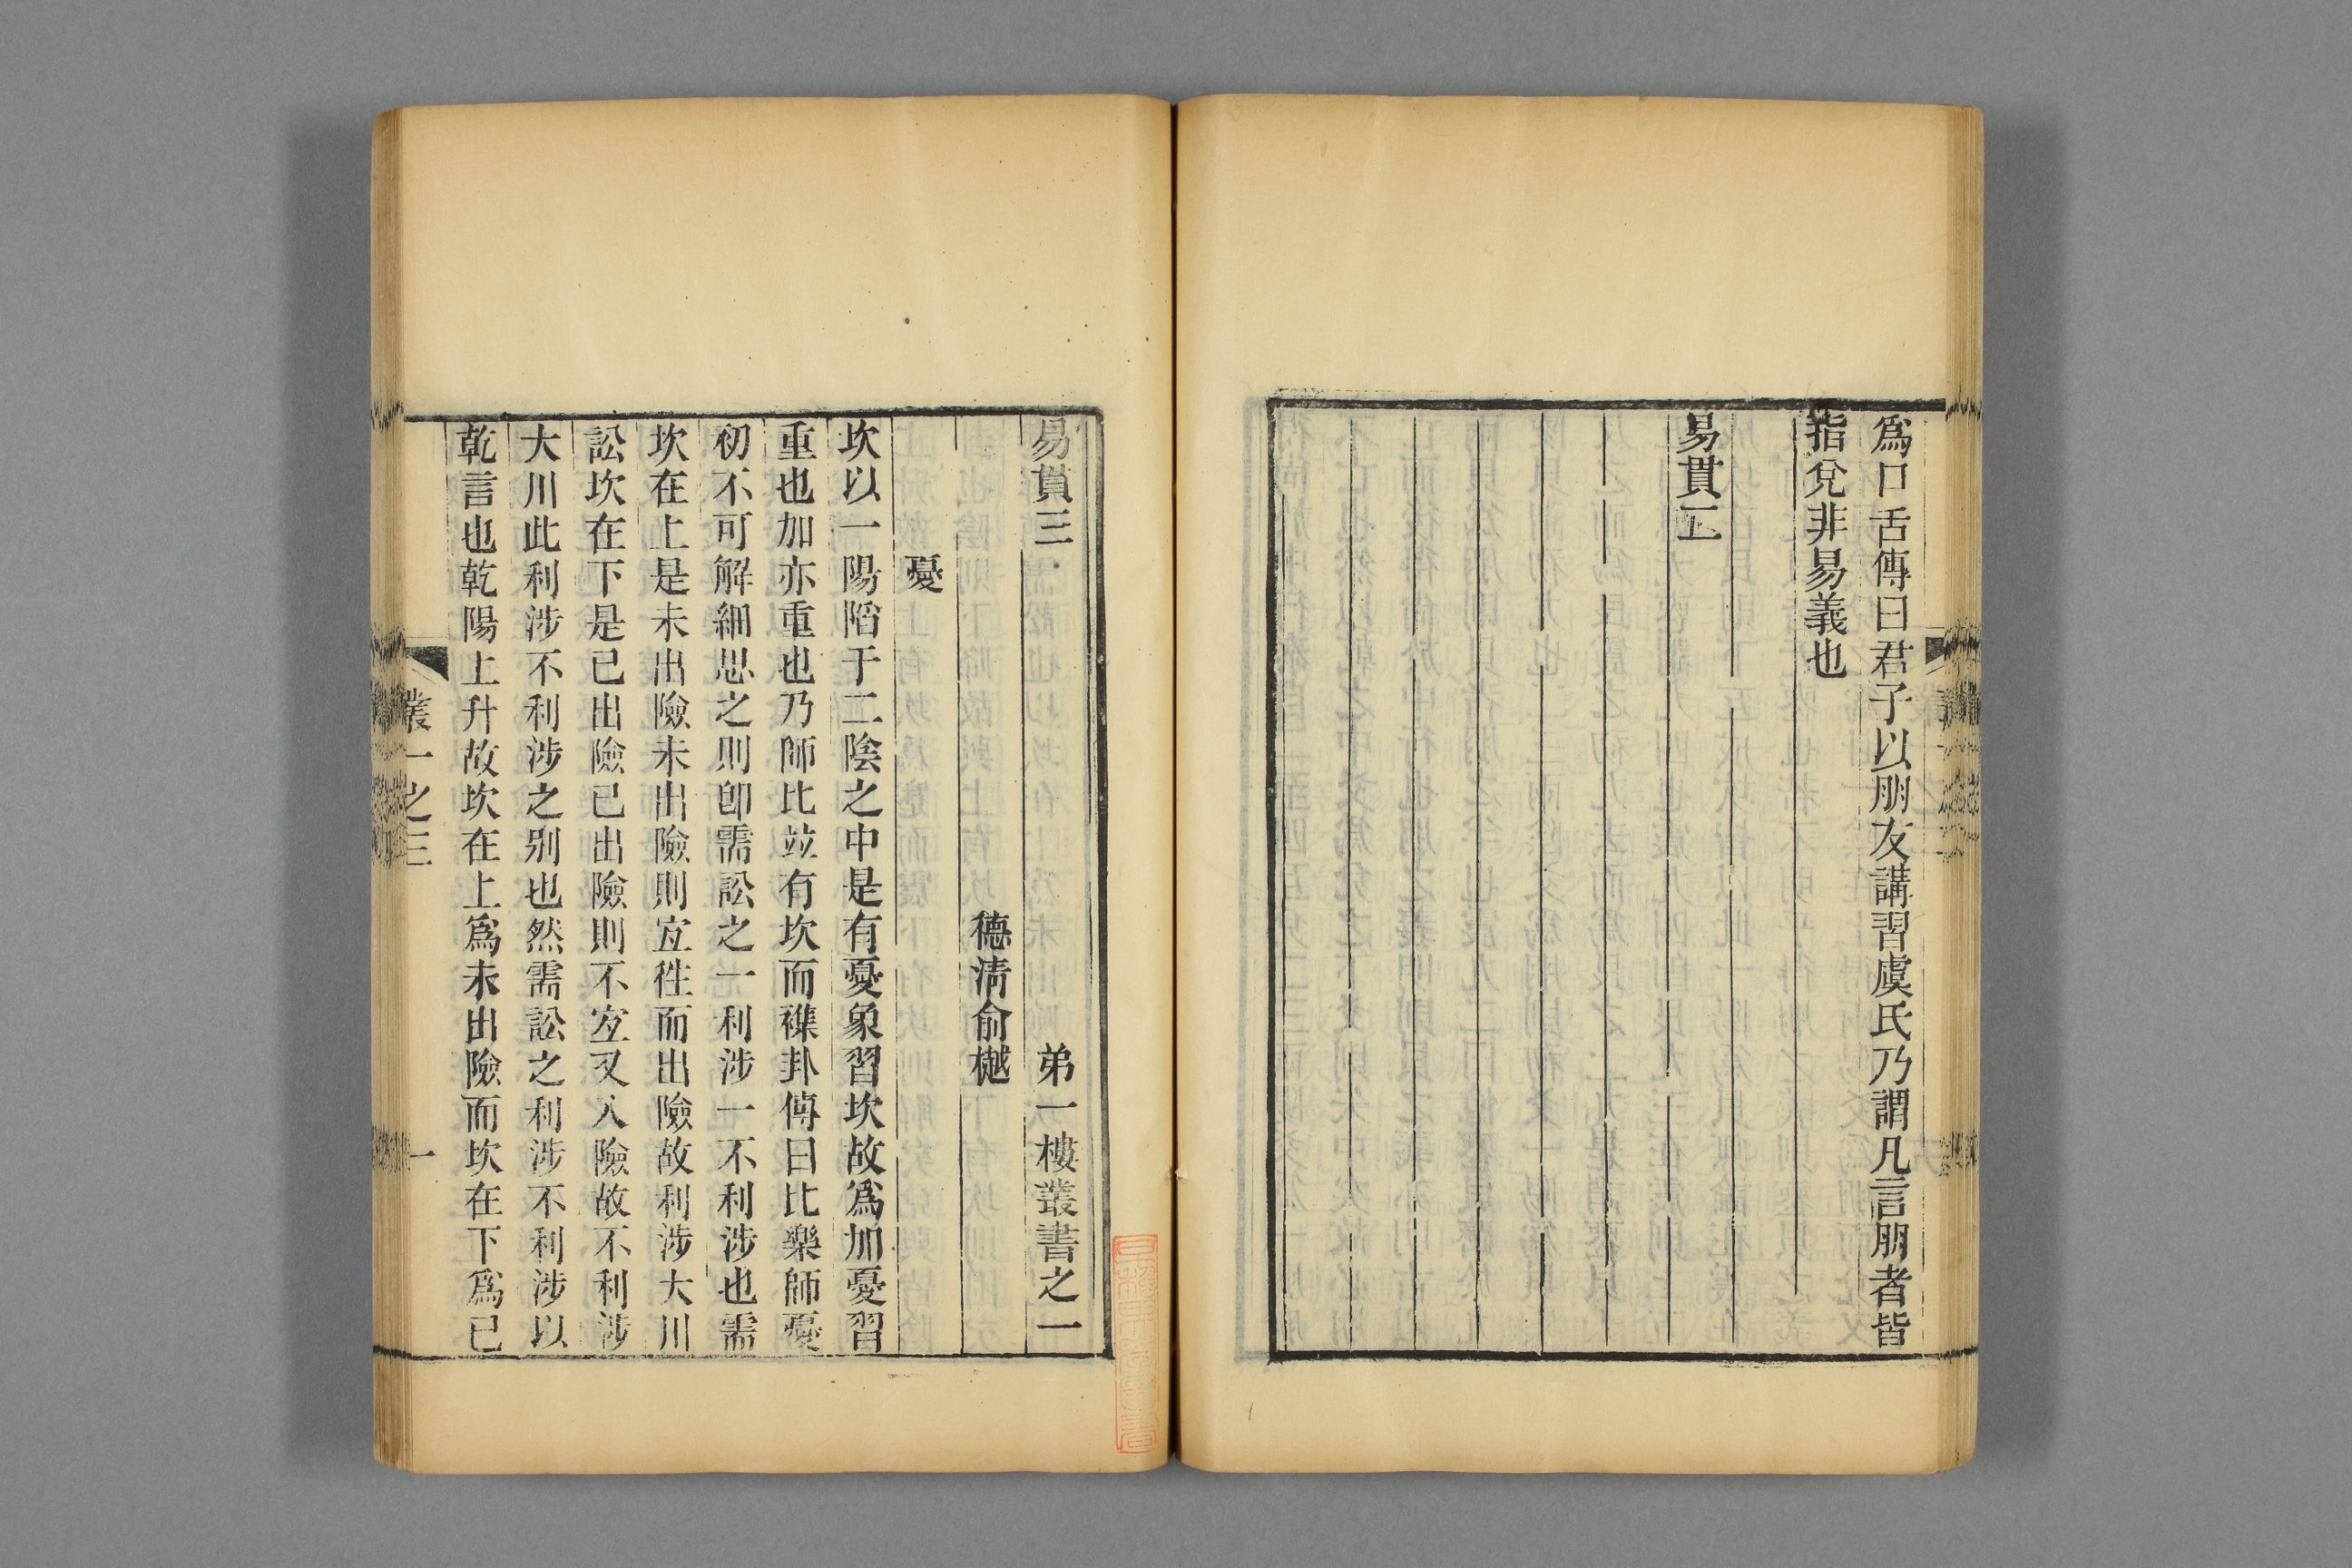 爲口舌傳曰君子以朋友講習虞氏乃謂凡言朋者皆
指兌非易義也
易貫二
易貫三　弟一樓叢書之一
德清俞樾
憂
坎以一陽陷于二陰之中是有憂象習坎故爲加憂習
重也加亦重也乃師比竝有坎而襍卦傳曰比樂師憂
初不可解細思之則卽需訟之一利涉一不利涉也需
坎在上是未出險未出險則宐徃而出險故利涉大川
訟坎在下是已出險已出險則不宐又入險故不利涉
大川此利涉不利涉之別也然需訟之利涉不利涉以
乾言也乾陽上升故坎在上爲未出險而坎在下爲已
叢一之三　一